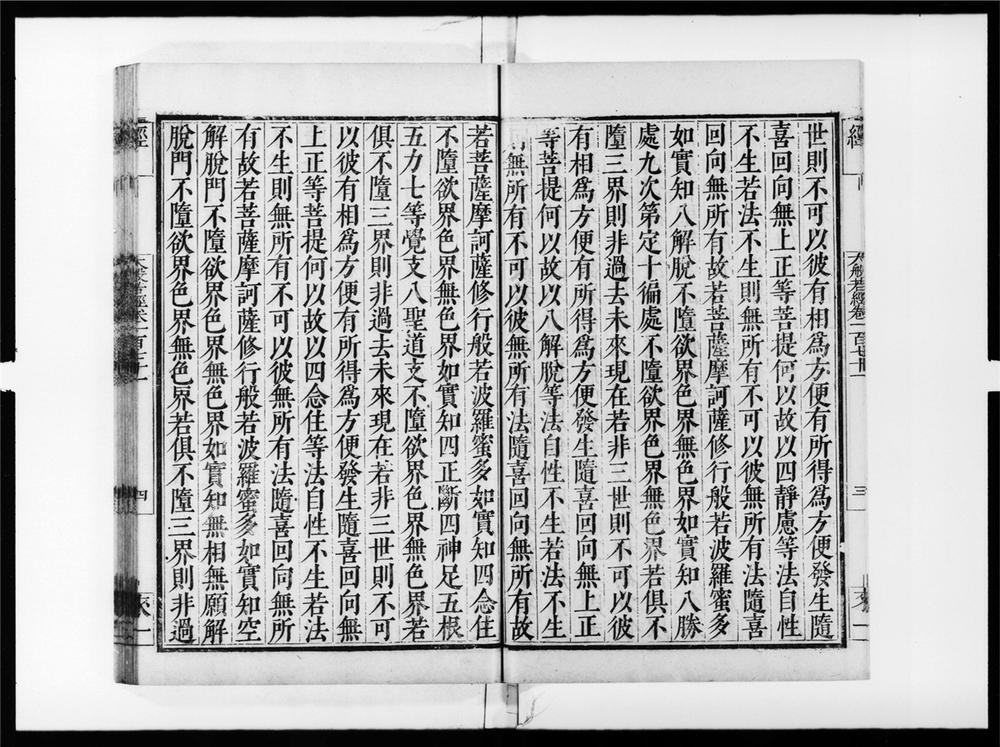 世則不可以彼有相為方便有所得為方便發生隨
喜回向無上正等菩提何以故以四靜慮等法自性
不生若法不生則無所有不可以彼無所有法隨喜
回向無所有故若菩薩摩訶薩修行般若波羅蜜多
如實知八解脫不墮欲界色界無色界如實知八勝
處九次第定十徧處不墮欲界色界無色界若俱不
墮三界則非過去未來現在若非三世則不可以彼
有相為方便有所得為方便發生隨喜回向無上正
等菩提何以故以八解脫等法自性不生若法不生
則無所有不可以彼無所有法隨喜回向無所有故
若菩薩摩訶薩修行般若波羅蜜多如實知四念住
不墮欲界色界無色界如實知四正斷四神足五根
五力七等覺支八聖道支不墮欲界色界無色界若
俱不墮三界則非過去未來現在若非三世則不可
以彼有相為方便有所得為方便發生隨喜回向無
上正等菩提何以故以四念住等法自性不生若法
不生則無所有不可以彼無所有法隨喜回向無所
有故若菩薩摩訶薩修行般若波羅蜜多如實知空
解脫門不墮欲界色界無色界如實知無相無願解
脫門不墮欲界色界無色界若俱不墮三界則非過
經
四